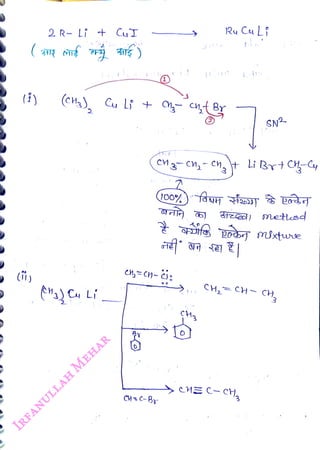 2R-Li + CuI ⟶ R₂CuLi
(सार लाई क्यूँ साई)
①
(i) (CH₃)₂ CuLi + CH₃-CH₂-Br
②
SN²
CH₃-CH₂-CH₃ + LiBr + CH₃-Cu
100% विषम संख्या के एल्केन
बनाने का अच्छा method
है क्योंकि एल्केन mixture
नहीं बन रहा है|
CH₂=CH-Cl:
(ii) (CH₃)₂CuLi ⟶ CH₂=CH-CH₃
CH₃
Br
⟶ CH≡C-CH₃
CH≡C-Br
IRFANULLAH MEHAR